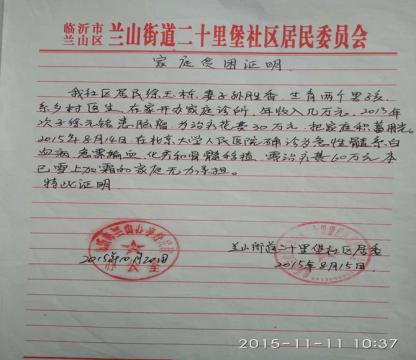 临沂市兰山区 兰山街道二十里堡社区居民委员会
家庭贫困证明
我社区居民徐玉栋,妻子孙胜香,生有两个男孩,
系乡村医生,在家开办家庭诊所,年收入几万元,2013年
次子徐元铭患脑瘤,为治病花费30万元,把家庭积蓄用光。
2015年8月14日在北京大学人民医院确诊为急性髓系白
血病,急需输血,化疗和骨髓移植,需治疗费60万元,本
已雪上加霜的家庭无力承担。
特此证明
兰山街道二十里堡社区居委
2015年10月20日
2015年8月15日
2015-11-11 10:37